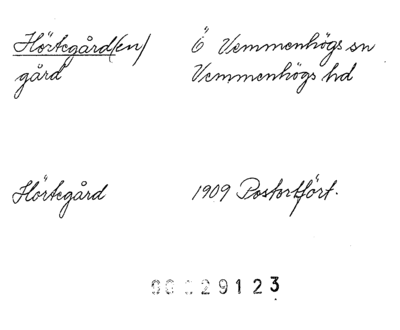 Hörtegård(en) Ö Vemmenhögs sn
gård Vemmenhögs hd
Hörtegård 1909 Postortfört.
29123